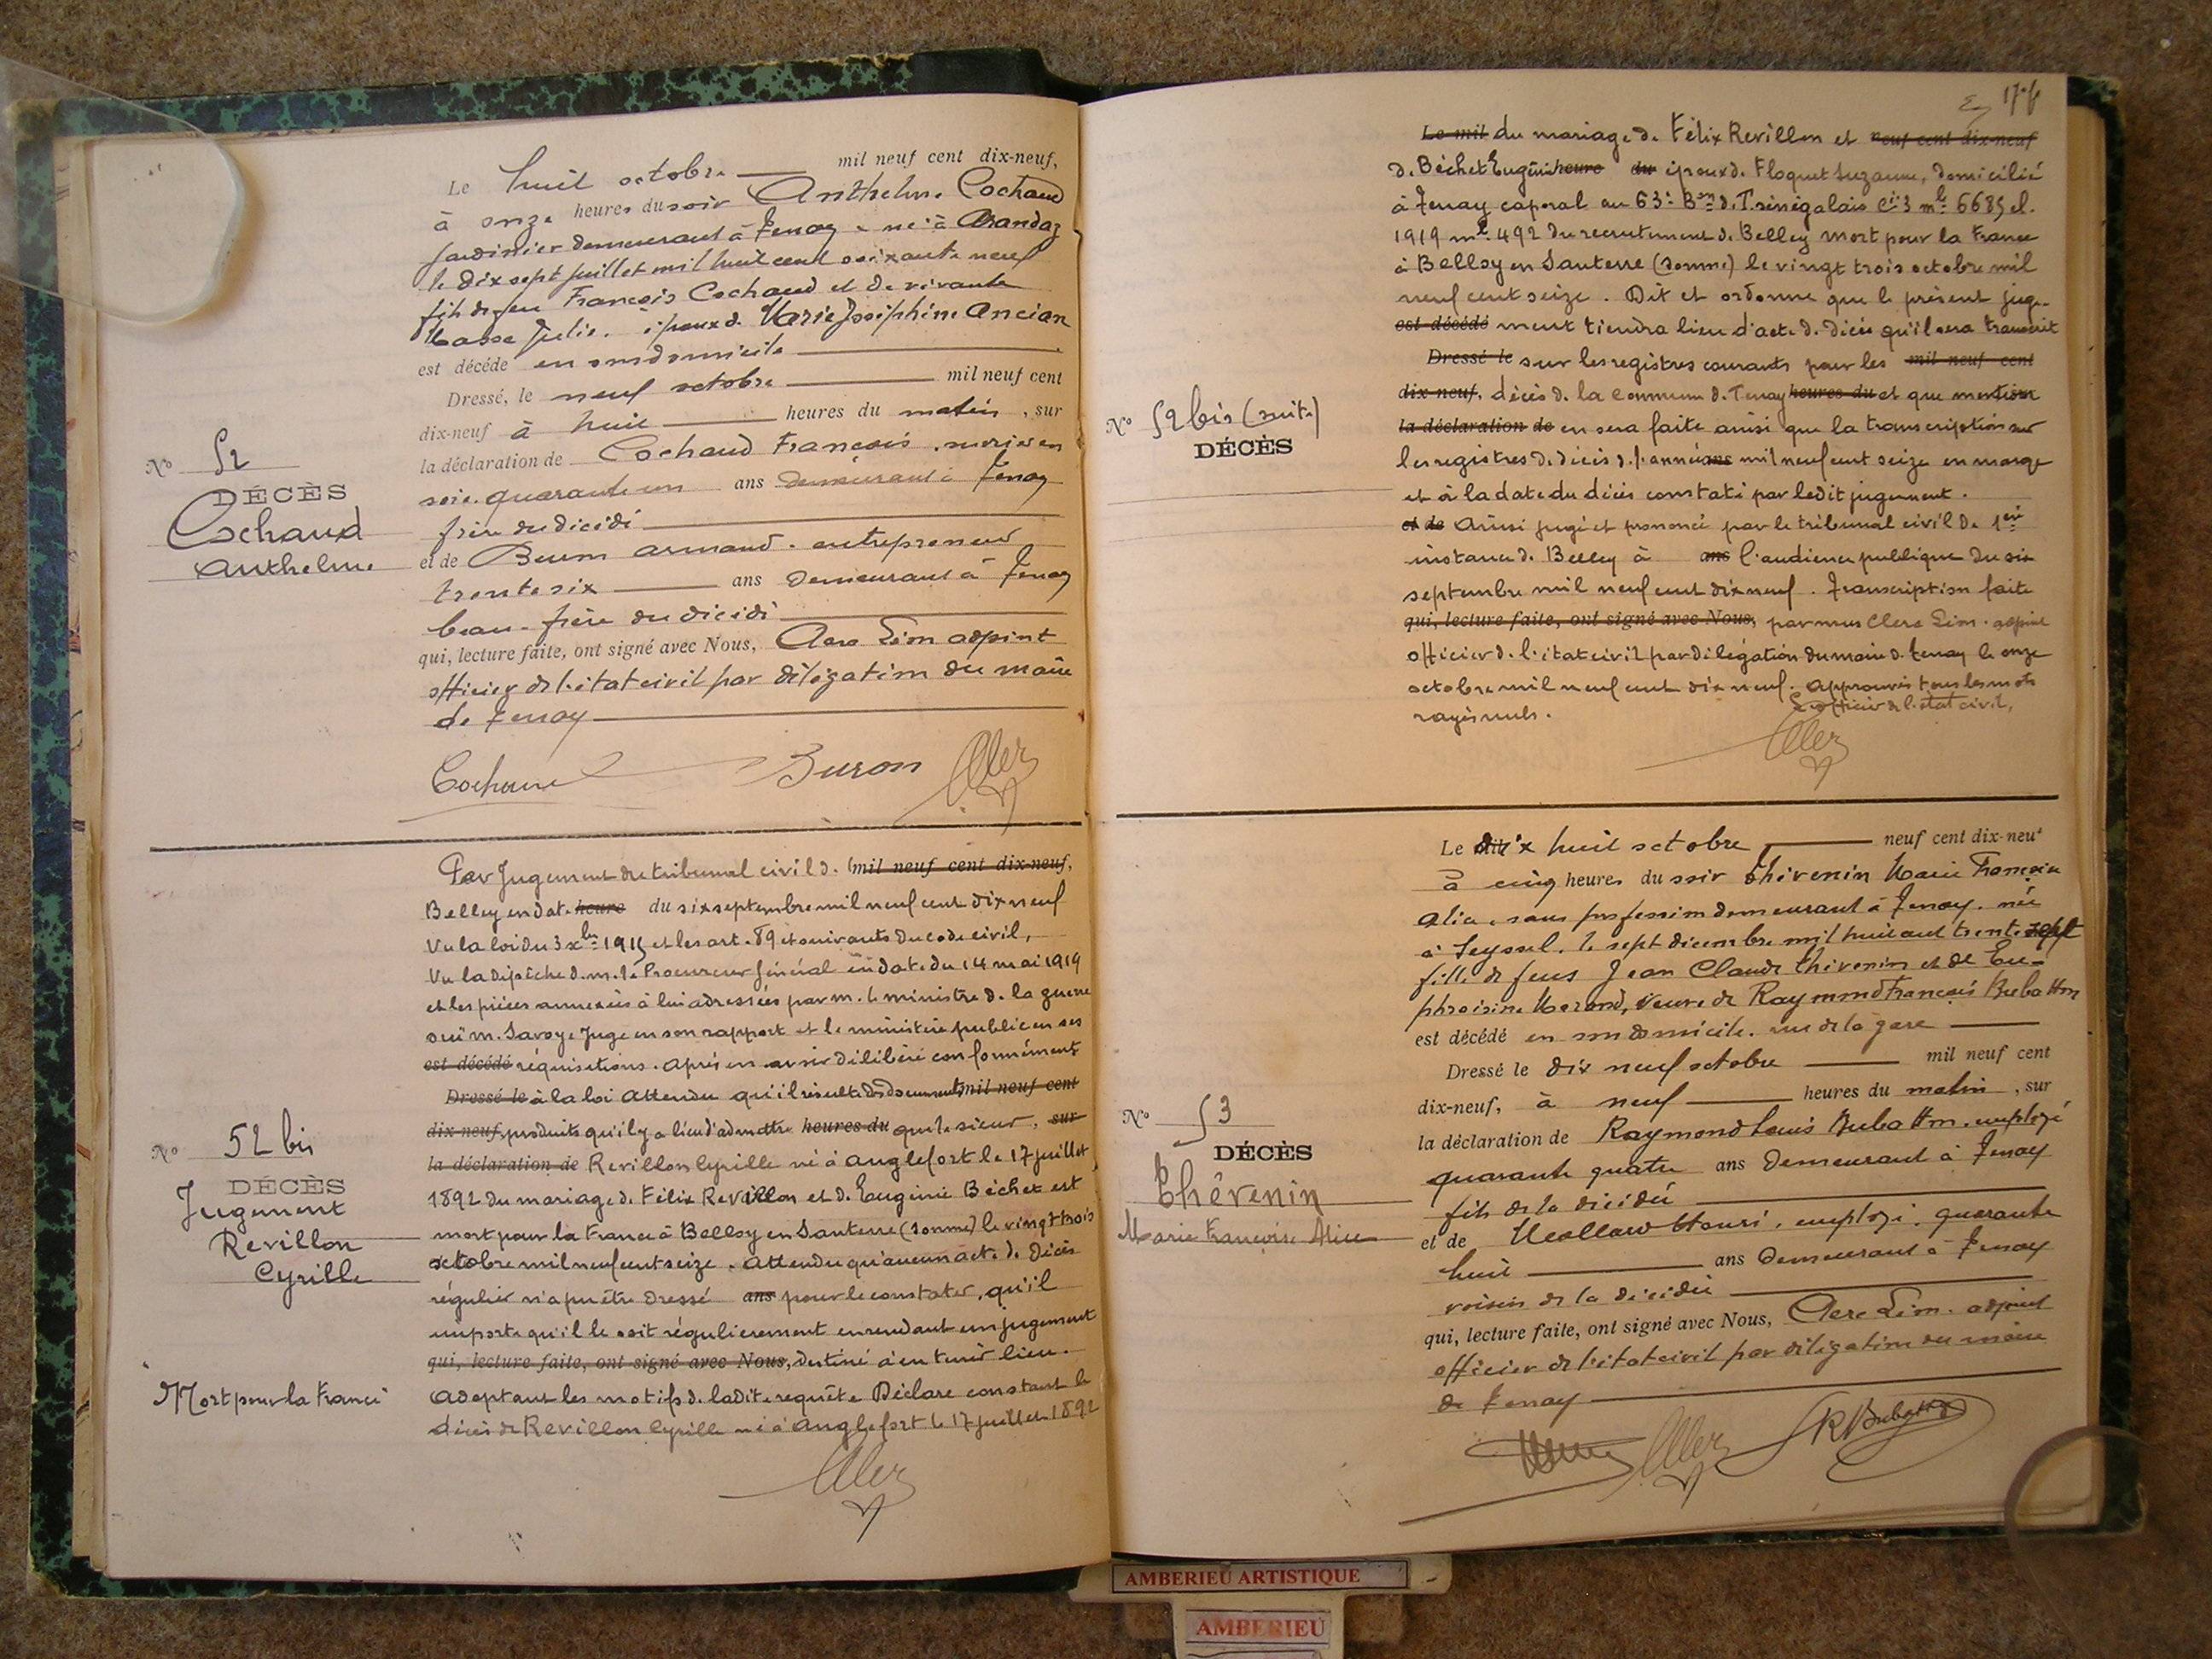 Le huit octobre mil neuf cent dix-neuf,
à onze heures du soir Anthelme Cochaud
jardinier demeurant à Tenay, né à Arandaz
le dix sept juillet mil huit cent soixante neuf
fils de feu François Cochaud et de vivante
Julie. époux de Marie Joséphine Ancian
est décédé en son domicile
Dressé, le neuf octobre mil neuf cent
dix-neuf à huit heures du matin, sur
la déclaration de Cochaud François,
soie. quarante un ans demeurant à Tenay
frère du décédé
et de Armand. entrepreneur
trente six ans demeurant à Tenay
beau-frère du décédé
qui, lecture faite, ont signé avec Nous, Clerc Léon adjoint
officier de l'état civil par délégation du maire
de Tenay
Cochaud Buron Clerc
No 52
DÉCÈS
Cochaud
Anthelme
Par Jugement du tribunal civil d. mil neuf cent dix-neuf,
Belley en date heure du six septembre mil neuf cent dix neuf
Vu la loi du 3 xbre 1915 et les art. 89 et suivants du code civil,
Vu la dépêche d. m. le Procureur Général en date du 14 mai 1919
et les pièces annexées à lui adressées par m. le ministre d. la guerre
ouï m. Savoye Juge en son rapport et le ministère public en ses
est décédé réquisitions. après en avoir délibéré conformément
Dressé le à la loi Attendu qu'il résulte des documents mil neuf cent
dix-neuf, produits qu'il y a lieu d'admettre heures du que le sieur, sur
la déclaration de Revillon Cyrille né à Anglefort le 17 juillet
1892 du mariage d. Félix Revillon et d. Eugénie Béchet est
mort pour la France à Belloy en Santerre (Somme) le vingt trois
octobre mil neuf cent seize. Attendu qu'aucun acte de décès
régulier n'a pu être dressé ans pour le constater, qu'il
importe qu'il le soit régulièrement en rendant un jugement
qui, lecture faite, ont signé avec Nous, destiné à en tenir lieu.
Adoptant les motifs d. ladite requête Déclare constant le
décès de Revillon Cyrille né à Anglefort le 17 juillet 1892
Clerc
No 52 bis
DÉCÈS
Jugement
Revillon
Cyrille
Mort pour la France
Le mil du mariage d. Félix Revillon et neuf cent dix-neuf
d. Béchet Eugénie heure du époux d. Floquet Suzanne, domicilié
à Tenay caporal au 63e Bon d. T. sénégalais Cie 3 mle 6685 cl.
1919 mle 492 du recrutement d. Belley mort pour la France
à Belloy en Santerre (Somme) le vingt trois octobre mil
neuf cent seize. Dit et ordonne que le présent juge-
est décédé ment tiendra lieu d'acte d. décès qu'il sera transcrit
Dressé le sur les registres courants pour les mil neuf cent
dix-neuf, décès d. la commune d. Tenay heures du et que mention
la déclaration de en sera faite ainsi que la transcription sur
les registres d. décès d. l'année ans mil neuf cent seize en marge
et à la date du décès constaté par ledit jugement.
et de Ainsi jugé et prononcé par le tribunal civil de 1ère
instance d. Belley à ans l'audience publique du six
septembre mil neuf cent dix neuf. Transcription faite
qui, lecture faite, ont signé avec Nous, par nous Clerc Léon. adjoint
officier d. l'état civil par délégation du maire d. Tenay le onze
octobre mil neuf cent dix neuf. Approuvés tous les mots
rayés nuls. L'officier de l'état civil,
Clerc
No 52 bis (suite)
DÉCÈS
Le dix huit octobre neuf cent dix-neuf
à cinq heures du soir Thévenin Marie Françoise
Alice, sans profession demeurant à Tenay. née
à Seyssel, le sept décembre mil huit cent trente sept
fille de feus Jean Claude Thévenin et de Eu-
phroisine, veuve de Raymond François Bubatton
est décédé en son domicile. rue de la gare
Dressé le dix neuf octobre mil neuf cent
dix-neuf, à neuf heures du matin, sur
la déclaration de Raymond Louis Bubatton. employé
quarante quatre ans demeurant à Tenay
fils de la décédée
et de Henri, employé. quarante
huit ans demeurant à Tenay
voisin de la décédée
qui, lecture faite, ont signé avec Nous, Clerc Léon. adjoint
officier de l'état civil par délégation du maire
de Tenay
Clerc RBubatton
No 53
DÉCÈS
Thévenin
Marie Françoise Alice
AMBERIEU ARTISTIQUE
AMBERIEU